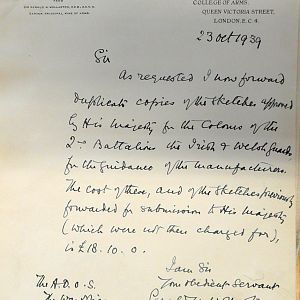 FROM
SIR GERALD W. WOLLASTON, K.C.B., K.C.V.O.
GARTER PRINCIPAL KING OF ARMS.
COLLEGE OF ARMS,
QUEEN VICTORIA STREET,
LONDON, E.C. 4.
23 Oct 1939
Sir
As requested I now forward
duplicate copies of the sketches approved
by His Majesty for the Colours of the
2nd Battalions the Irish & Welsh Guards
for the guidance of the manufacturers.
The cost of these, and of the sketches previously
forwarded for submission to His Majesty
(which were not then charged for),
is £18.10.0.
I am Sir
Your obedient Servant
The A.D.O.S.
The War Office